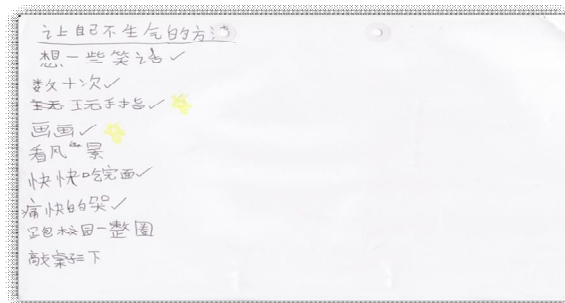 让自己不生气的方法
想一些笑话✓
数十次✓
玩手指✓
画画✓
看风景
快快吃完面✓
痛快的哭✓
跑校园一整圈
敲桌子三下